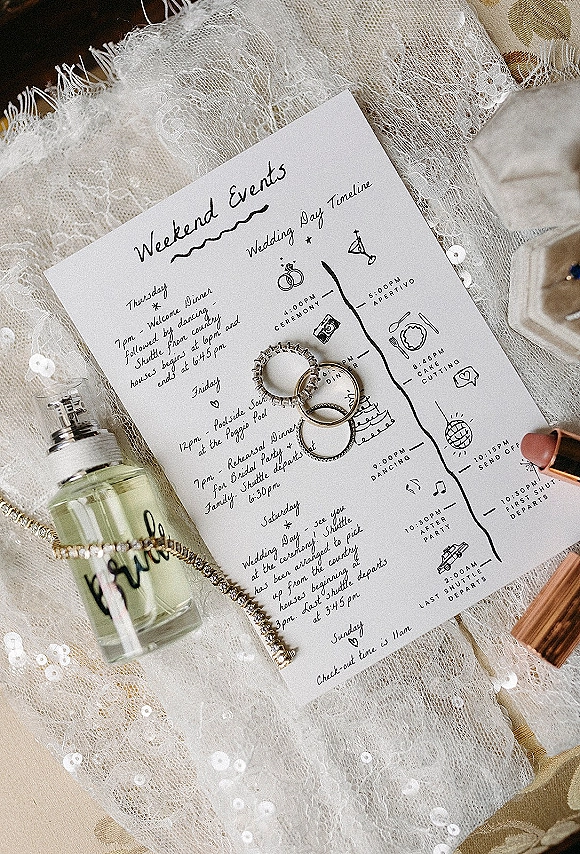 Weekend Events
Thursday
7pm - Welcome Dinner
followed by dancing -
Shuttle from country
houses begins at 6pm and
ends at 6:45pm
Friday
12pm - Poolside
at the Poggio Pool
7pm - Rehearsal Dinner
for Bridal Party +
Family. Shuttle departs at
6:30pm
Saturday
Wedding Day - see you
at the ceremony! Shuttle
has been arranged to pick
up from the country
houses beginning at
3pm. Last shuttle departs
at 3:45pm
Sunday
Check-out time is 11am
Wedding Day Timeline
4:00PM
CEREMONY
5:00PM
APERTIVO
8:45PM
CAKE
CUTTING
9:00PM
DANCING
10:15PM
SEND OFF
10:30PM
AFTER
PARTY
10:30PM
FIRST SHUT
DEPARTS
2:00AM
LAST SHUTTLE
DEPARTS
bride